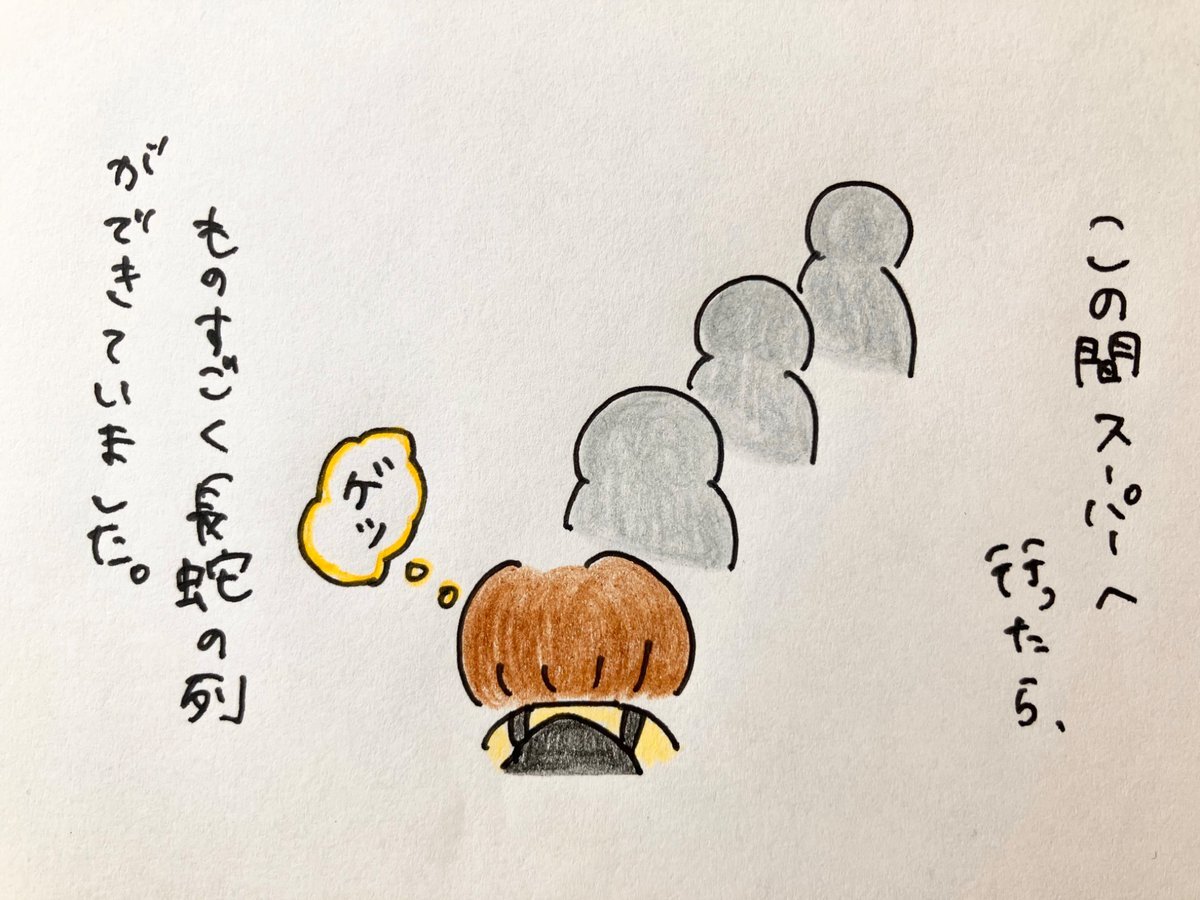 この間スーパーへ
行ったら、
ゲッ
ものすごく長蛇の列
ができていました。